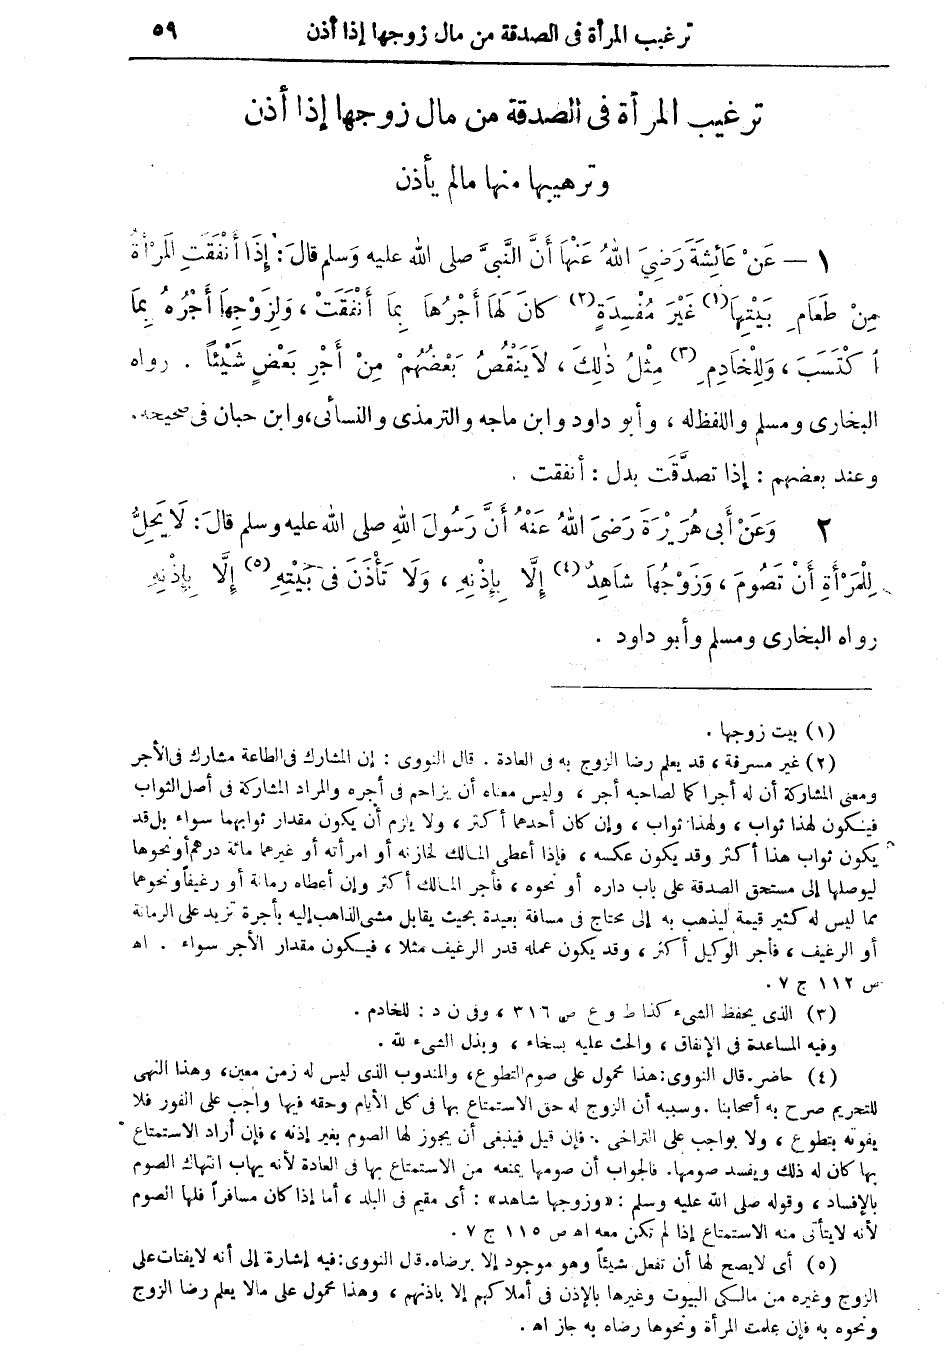 ترغيب المرأة فى الصدقة من مال زوجها إذا أذن ٥٩
ترغيب المرأة فى الصدقة من مال زوجها إذا أذن
وترهيبها منها مالم يأذن
١ — عَنْ عَائِشَةَ رَضِيَ اللهُ عَنْهَا أَنَّ النَّبِيَّ صلى الله عليه وَسلم قالَ: إِذَا أَنْفَقَتِ المَرْأَةُ
مِنْ طَعَامِ بَيْتِهَا(١) غَيْرَ مُفْسِدَةٍ(٢) كانَ لَهَا أَجْرُهَا بِمَا أَنْفَقَتْ ، وَلِزَوْجِهَا أَجْرُهُ بِمَا
اكْتَسَبَ ، وَلِلْخَادِمِ(٣) مِثْلُ ذٰلِكَ ، لاَ يَنْقُصُ بَعْضُهُمْ مِنْ أَجْرِ بَعْضٍ شَيْئاً . رواه
البخارى ومسلم واللفظ له ، وأبو داود وابن ماجه والترمذى والنسائى، وابن حبان فى صحيحه.
وعند بعضهم : إذا تصدَّقَت بدل : أنفقت .
٢ وَعَنْ أَبِى هُرَيْرَةَ رَضِىَ اللهُ عَنْهُ أَنَّ رَسُولَ اللهِ صلى الله عليه وسلم قالَ: لَا يَحِلُّ
لِلْمَرْأَةِ أَنْ تَصُومَ ، وَزَوْجُهَا شَاهِدٌ(٤) إِلَّا بِإِذْنِهِ ، وَلَا تَأْذَنَ فى بَيْتِهِ(٥) إِلَّا بِإِذْنِهِ
رواه البخارى ومسلم وأبو داود .
(١) بيت زوجها .
(٢) غير مسرفة ، قد يعلم رضا الزوج به فى العادة . قال النووى : إن المشارك فى الطاعة مشارك فى الأجر
ومعنى المشاركة أن له أجرا كما لصاحبه أجر ، وليس معناه أن يزاحم فى أجره والمراد المشاركة فى أصل الثواب
فيكون لهذا ثواب ، ولهذا ثواب ، وإن كان أحدهما أكثر ، ولا يلزم أن يكون مقدار ثوابهما سواء بل قد
يكون ثواب هذا أكثر وقد يكون عكسه ، فإذا أعطى المالك لخازنه أو امرأته أو غيرهما مائة درهم أو نحوها
ليوصلها إلى مستحق الصدقة على باب داره أو نحوه ، فأجر المالك أكثر وإن أعطاه رمانة أو رغيفاً ونحوهما
مما ليس له كثير قيمة ليذهب به إلى محتاج فى مسافة بعيدة بحيث يقابل مشى الذاهب إليه بأجرة تزيد على الرمانة
أو الرغيف ، فأجر الوكيل أكثر ، وقد يكون عمله قدر الرغيف مثلا ، فيكون مقدار الأجر سواء . اه
ص ١١٢ ج ٧ .
(٣) الذى يحفظ الشىء كذا ط و ع ص ٣١٦ ، وفى ن د : للخادم .
وفيه المساعدة فى الإنفاق ، والحث عليه بسخاء ، وبذل الشىء لله .
(٤) حاضر. قال النووى: هذا محمول على صوم التطوع، والمندوب الذى ليس له زمن معين، وهذا النهى
للتحريم صرح به أصحابنا . وسببه أن الزوج له حق الاستمتاع بها فى كل الأيام وحقه فيها واجب على الفور فلا
يفوته بتطوع ، ولا بواجب على التراخى . فإن قيل فينبغى أن يجوز لها الصوم بغير إذنه ، فإن أراد الاستمتاع
بها كان له ذلك ويفسد صومها. فالجواب أن صومها يمنعه من الاستمتاع بها فى العادة لأنه يهاب انتهاك الصوم
بالإفساد ، وقوله صلى الله عليه وسلم : «وزوجها شاهد» : أى مقيم فى البلد ، أما إذا كان مسافراً فلها الصوم
لأنه لا يتأتى منه الاستمتاع إذا لم تكن معه اه ص ١١٥ ج ٧ .
(٥) أى لا يصح لها أن تفعل شيئاً وهو موجود إلا برضاه. قال النووى: فيه إشارة إلى أنه لا يفتات على
الزوج وغيره من مالكى البيوت وغيرها بالإذن فى أملاكهم إلا باذنهم ، وهذا محمول على مالا يعلم رضا الزوج
ونحوه به فإن علمت المرأة ونحوها رضاه به جاز اه .